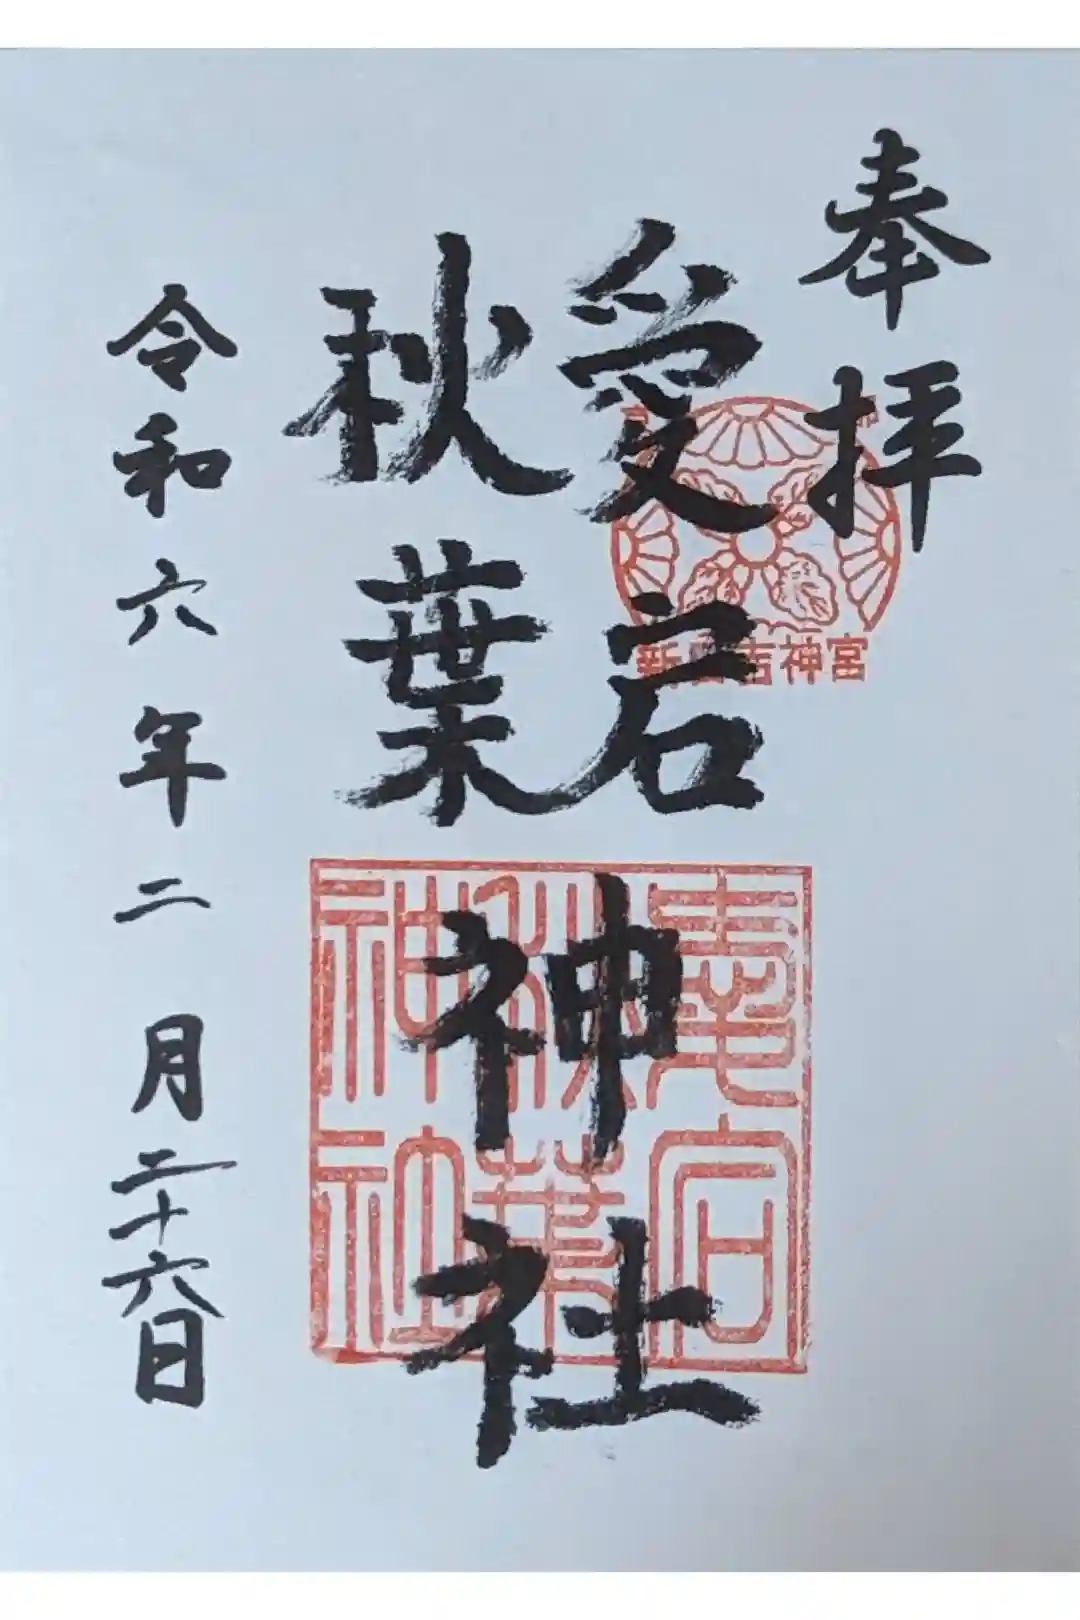 奉拝
愛宕
秋葉
神社
令和六年二月二十六日
新日吉神宮
愛宕
秋葉
神社